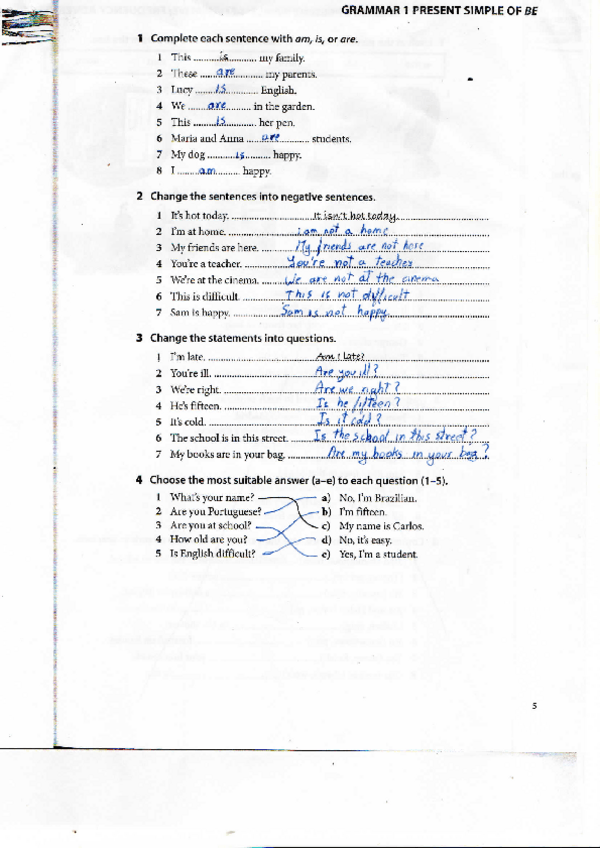 GRAMMAR 1 PRESENT SIMPLE OF BE
1 Complete each sentence with am, is, or are.
1 This ............is............ my family.
2 These ......are......... my parents.
3 Lucy .......is............. English.
4 We .......are........... in the garden.
5 This ............is............ her pen.
6 Maria and Anna .....are.................. students.
7 My dog ............is............ happy.
8 I .........am............ happy.
2 Change the sentences into negative sentences.
1 It's hot today. ............ It isn't hot today.
2 I'm at home. ............ I am not a home
3 My friends are here. ............ My friends are not here
4 You're a teacher. ............ You're not a teacher
5 We're at the cinema. ............ We are not at the cinema
6 This is difficult. ............ This is not difficult
7 Sam is happy. ............ Sam is not happy
3 Change the statements into questions.
1 I'm late. ............ Am I late?
2 You're ill. ............ Are you ill?
3 We're right. ............ Are we right?
4 He's fifteen. ............ Is he fifteen?
5 It's cold. ............ Is it cold?
6 The school is in this street. ............ Is the school in this street?
7 My books are in your bag. ............ Are my books in your bag?
4 Choose the most suitable answer (a–e) to each question (1–5).
1 What's your name? a) No, I'm Brazilian.
2 Are you Portuguese? b) I'm fifteen.
3 Are you at school? c) My name is Carlos.
4 How old are you? d) No, it's easy.
5 Is English difficult? e) Yes, I'm a student.
5